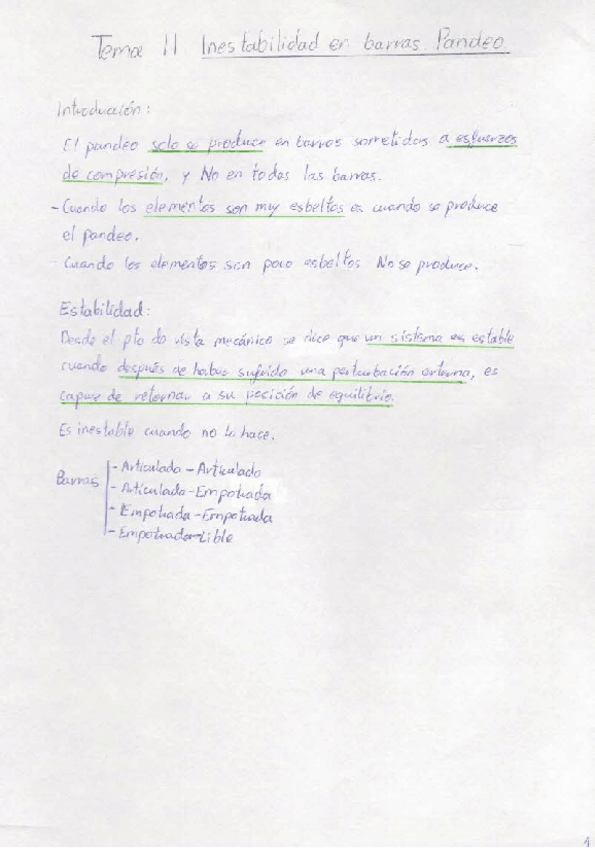 Tema 11 Inestabilidad en barras. Pandeo
Introducción:
El pandeo solo se produce en barras sometidas a esfuerzos
de compresión, y No en todas las barras.
- Cuando los elementos son muy esbeltos es cuando se produce
el pandeo.
- Cuando los elementos son poco esbeltos No se produce.
Estabilidad:
Desde el pto de vista mecánico se dice que un sistema es estable
cuando después de haber sufrido una perturbación externa, es
capaz de retornar a su posición de equilibrio.
Es inestable cuando no lo hace.
Barras
- Articulado - Articulado
- Articulada - Empotrada
- Empotrada - Empotrada
- Empotrada - Lible
1